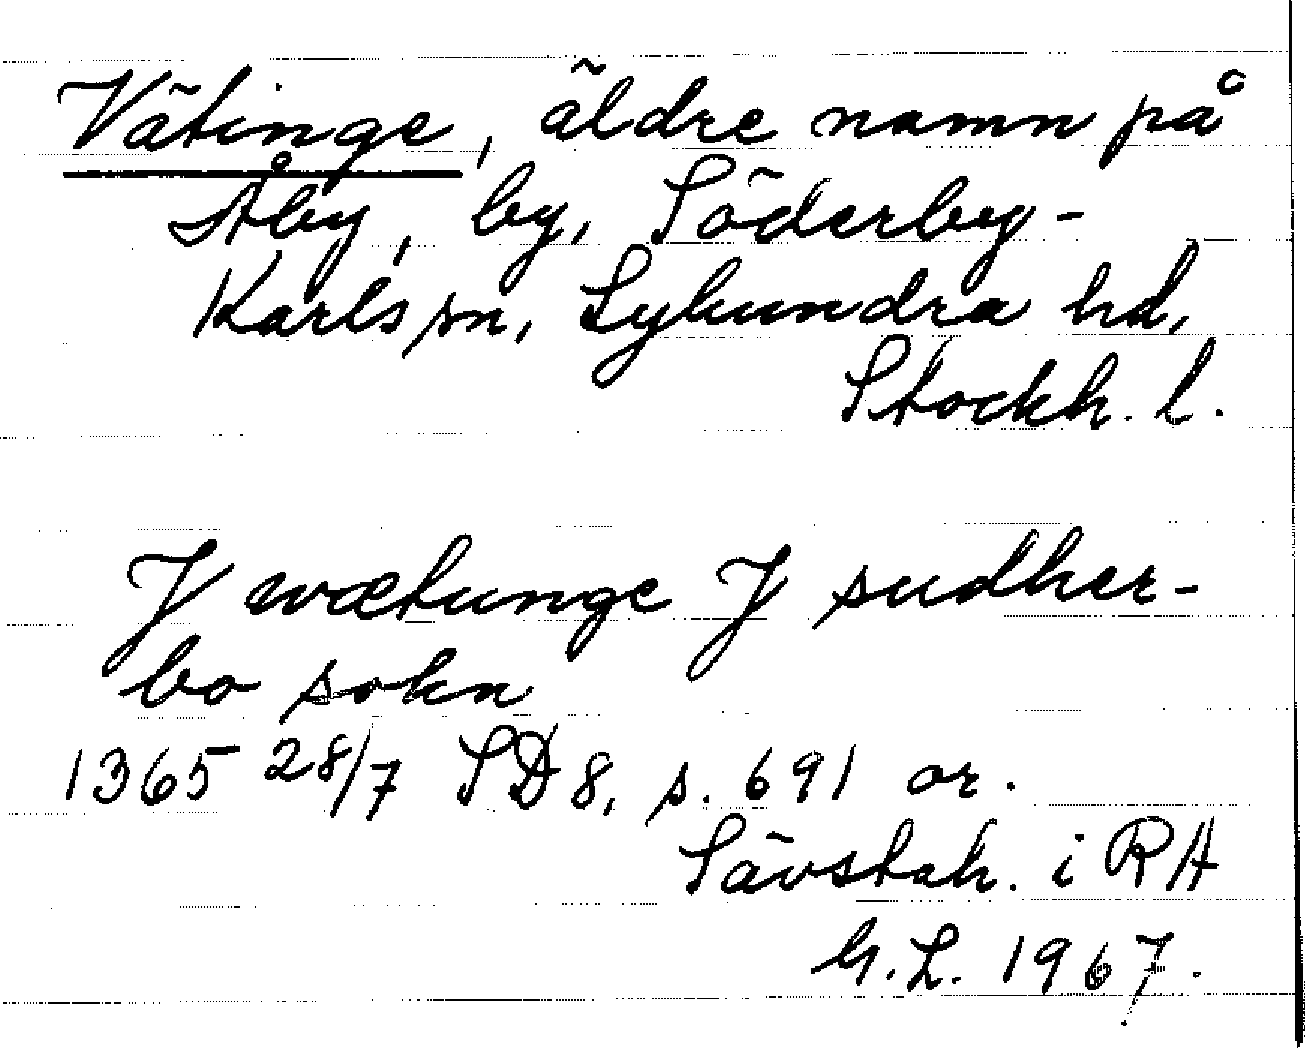 Vätinge, äldre namn på
Åby, by, Söderby-
Karls sn, Lyhundra hd,
Stockh. l.
J wætunge J sudher-
bo sokn
1365 28/7 SD 8, s. 691 or.
Sävstah. i RA
G.L. 1967.